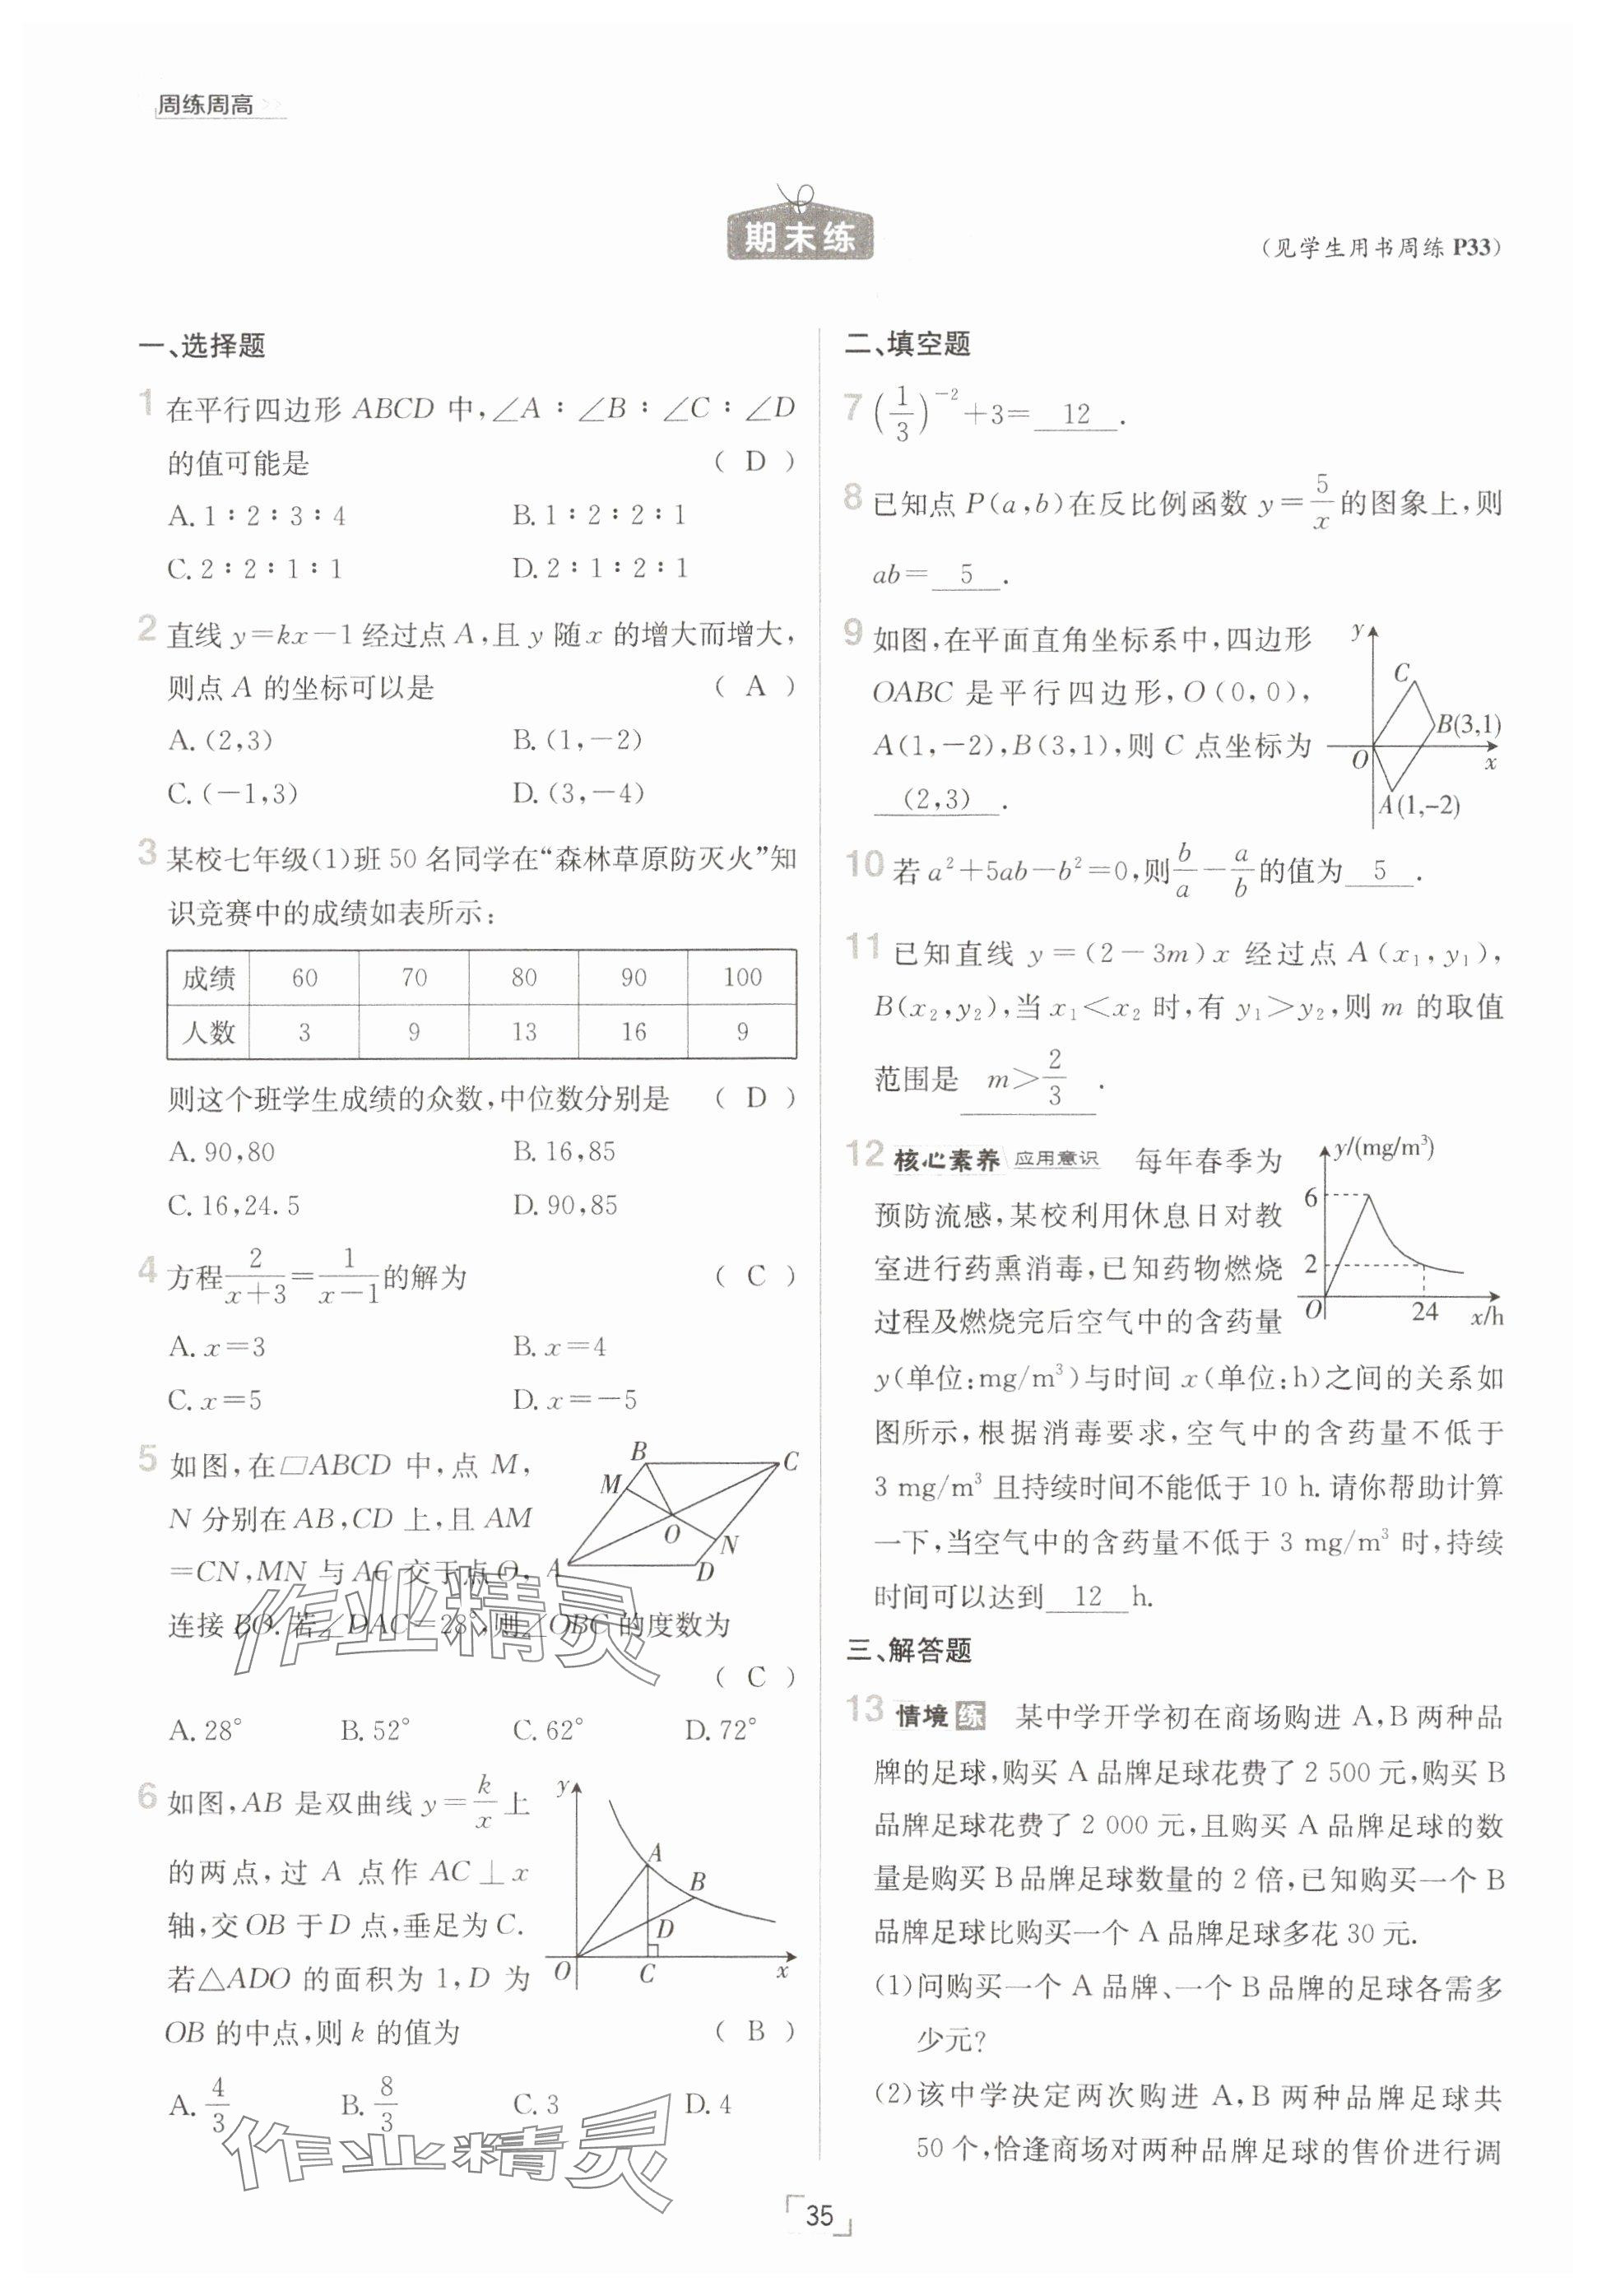 周练周高
期末练
(见学生用书周练 P33)
一、选择题
1 在平行四边形 ABCD 中,∠A∶∠B∶∠C∶∠D
的值可能是 ( D )
A. 1∶2∶3∶4 B. 1∶2∶2∶1
C. 2∶2∶1∶1 D. 2∶1∶2∶1
2 直线 y=kx-1 经过点 A,且 y 随 x 的增大而增大,
则点 A 的坐标可以是 ( A )
A. (2,3) B. (1,-2)
C. (-1,3) D. (3,-4)
3 某校七年级(1)班 50 名同学在“森林草原防灭火”知
识竞赛中的成绩如表所示:
成绩 60 70 80 90 100
人数 3 9 13 16 9
则这个班学生成绩的众数,中位数分别是 ( D )
A. 90,80 B. 16,85
C. 16,24.5 D. 90,85
4 方程 2/(x+3)=1/(x-1) 的解为 ( C )
A. x=3 B. x=4
C. x=5 D. x=-5
5 如图,在□ABCD 中,点 M,
N 分别在 AB,CD 上,且 AM
=CN,MN 与 AC 交于点 O,
连接 BO. 若∠DAC=28°,则∠OBC 的度数为
( C )
A. 28° B. 52° C. 62° D. 72°
B
C
M
O
N
A
D
6 如图,AB 是双曲线 y=k/x 上
的两点,过 A 点作 AC⊥x
轴,交 OB 于 D 点,垂足为 C.
若△ADO 的面积为 1,D 为
OB 的中点,则 k 的值为 ( B )
A. 4/3 B. 8/3 C. 3 D. 4
y
A
B
D
O
C
x
二、填空题
7 (1/3)⁻²+3= 12 .
8 已知点 P(a,b)在反比例函数 y=5/x 的图象上,则
ab= 5 .
9 如图,在平面直角坐标系中,四边形
OABC 是平行四边形,O(0,0),
A(1,-2),B(3,1),则 C 点坐标为
(2,3) .
y
C
B(3,1)
O
x
A(1,-2)
10 若 a²+5ab-b²=0,则 b/a-a/b 的值为 5 .
11 已知直线 y=(2-3m)x 经过点 A(x₁,y₁),
B(x₂,y₂),当 x₁<x₂ 时,有 y₁>y₂,则 m 的取值
范围是 m>2/3 .
12 核心素养 应用意识 每年春季为
预防流感,某校利用休息日对教
室进行药熏消毒,已知药物燃烧
过程及燃烧完后空气中的含药量
y(单位:mg/m³)与时间 x(单位:h)之间的关系如
图所示,根据消毒要求,空气中的含药量不低于
3 mg/m³ 且持续时间不能低于 10 h. 请你帮助计算
一下,当空气中的含药量不低于 3 mg/m³ 时,持续
时间可以达到 12 h.
y/(mg/m³)
6
2
O
24
x/h
三、解答题
13 情境 练 某中学开学初在商场购进 A,B 两种品
牌的足球,购买 A 品牌足球花费了 2 500 元,购买 B
品牌足球花费了 2 000 元,且购买 A 品牌足球的数
量是购买 B 品牌足球数量的 2 倍,已知购买一个 B
品牌足球比购买一个 A 品牌足球多花 30 元.
(1)问购买一个 A 品牌、一个 B 品牌的足球各需多
少元?
(2)该中学决定两次购进 A,B 两种品牌足球共
50 个,恰逢商场对两种品牌足球的售价进行调
作业精灵
作业精灵
35